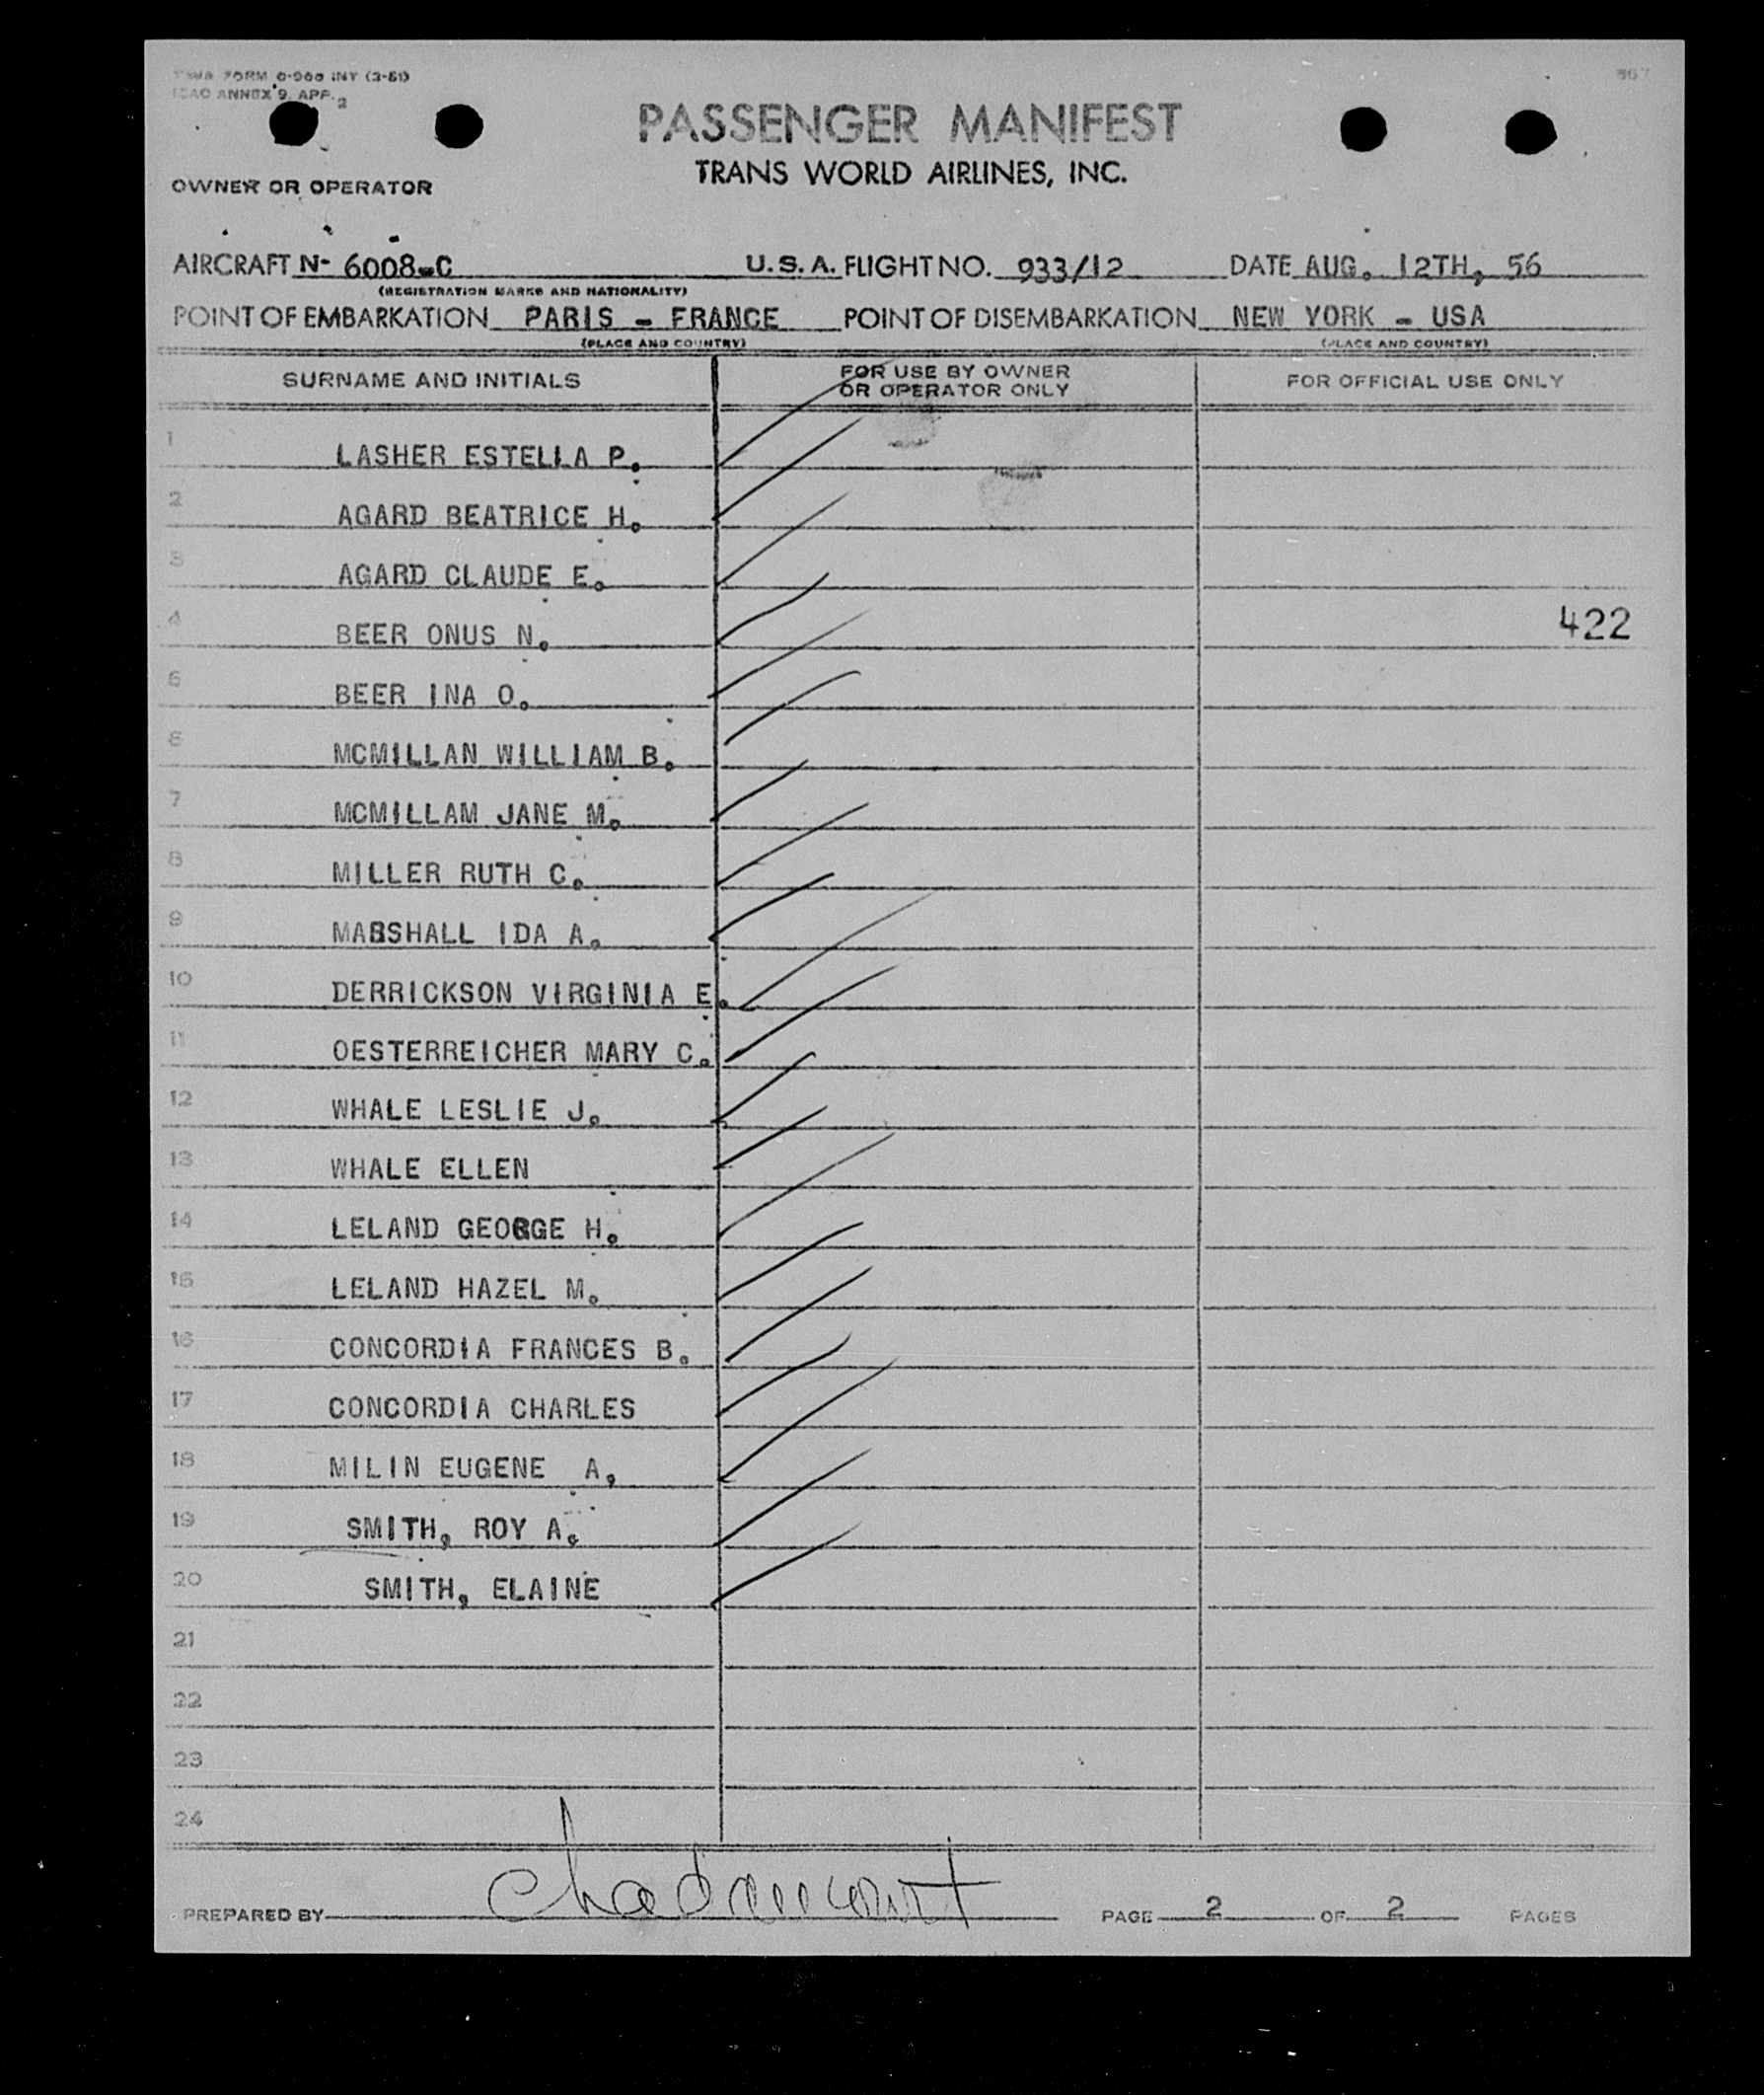 TWA FORM O-960 INT (3-51)
ICAO ANNEX 9, APP. 2
PASSENGER MANIFEST
TRANS WORLD AIRLINES, INC.
OWNER OR OPERATOR
AIRCRAFT N- 6008-C U.S.A. FLIGHT NO. 933/12 DATE AUG. 12TH, 56
(REGISTRATION MARKS AND NATIONALITY)
POINT OF EMBARKATION PARIS - FRANCE POINT OF DISEMBARKATION NEW YORK - USA
(PLACE AND COUNTRY) (PLACE AND COUNTRY)
SURNAME AND INITIALS FOR USE BY OWNER OR OPERATOR ONLY FOR OFFICIAL USE ONLY
1 LASHER ESTELLA P.
2 AGARD BEATRICE H.
3 AGARD CLAUDE E.
4 BEER ONUS N. 422
5 BEER INA O.
6 MCMILLAN WILLIAM B.
7 MCMILLAM JANE M.
8 MILLER RUTH C.
9 MARSHALL IDA A.
10 DERRICKSON VIRGINIA E.
11 OESTERREICHER MARY C.
12 WHALE LESLIE J.
13 WHALE ELLEN
14 LELAND GEORGE H.
15 LELAND HAZEL M.
16 CONCORDIA FRANCES B.
17 CONCORDIA CHARLES
18 MILIN EUGENE A.
19 SMITH, ROY A.
20 SMITH, ELAINE
21
22
23
24
PREPARED BY PAGE 2 OF 2 PAGES